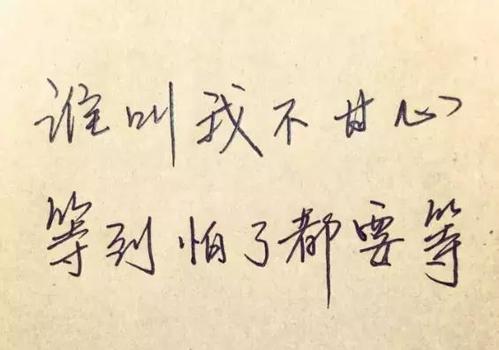 谁叫我不甘心
等到怕了都要等